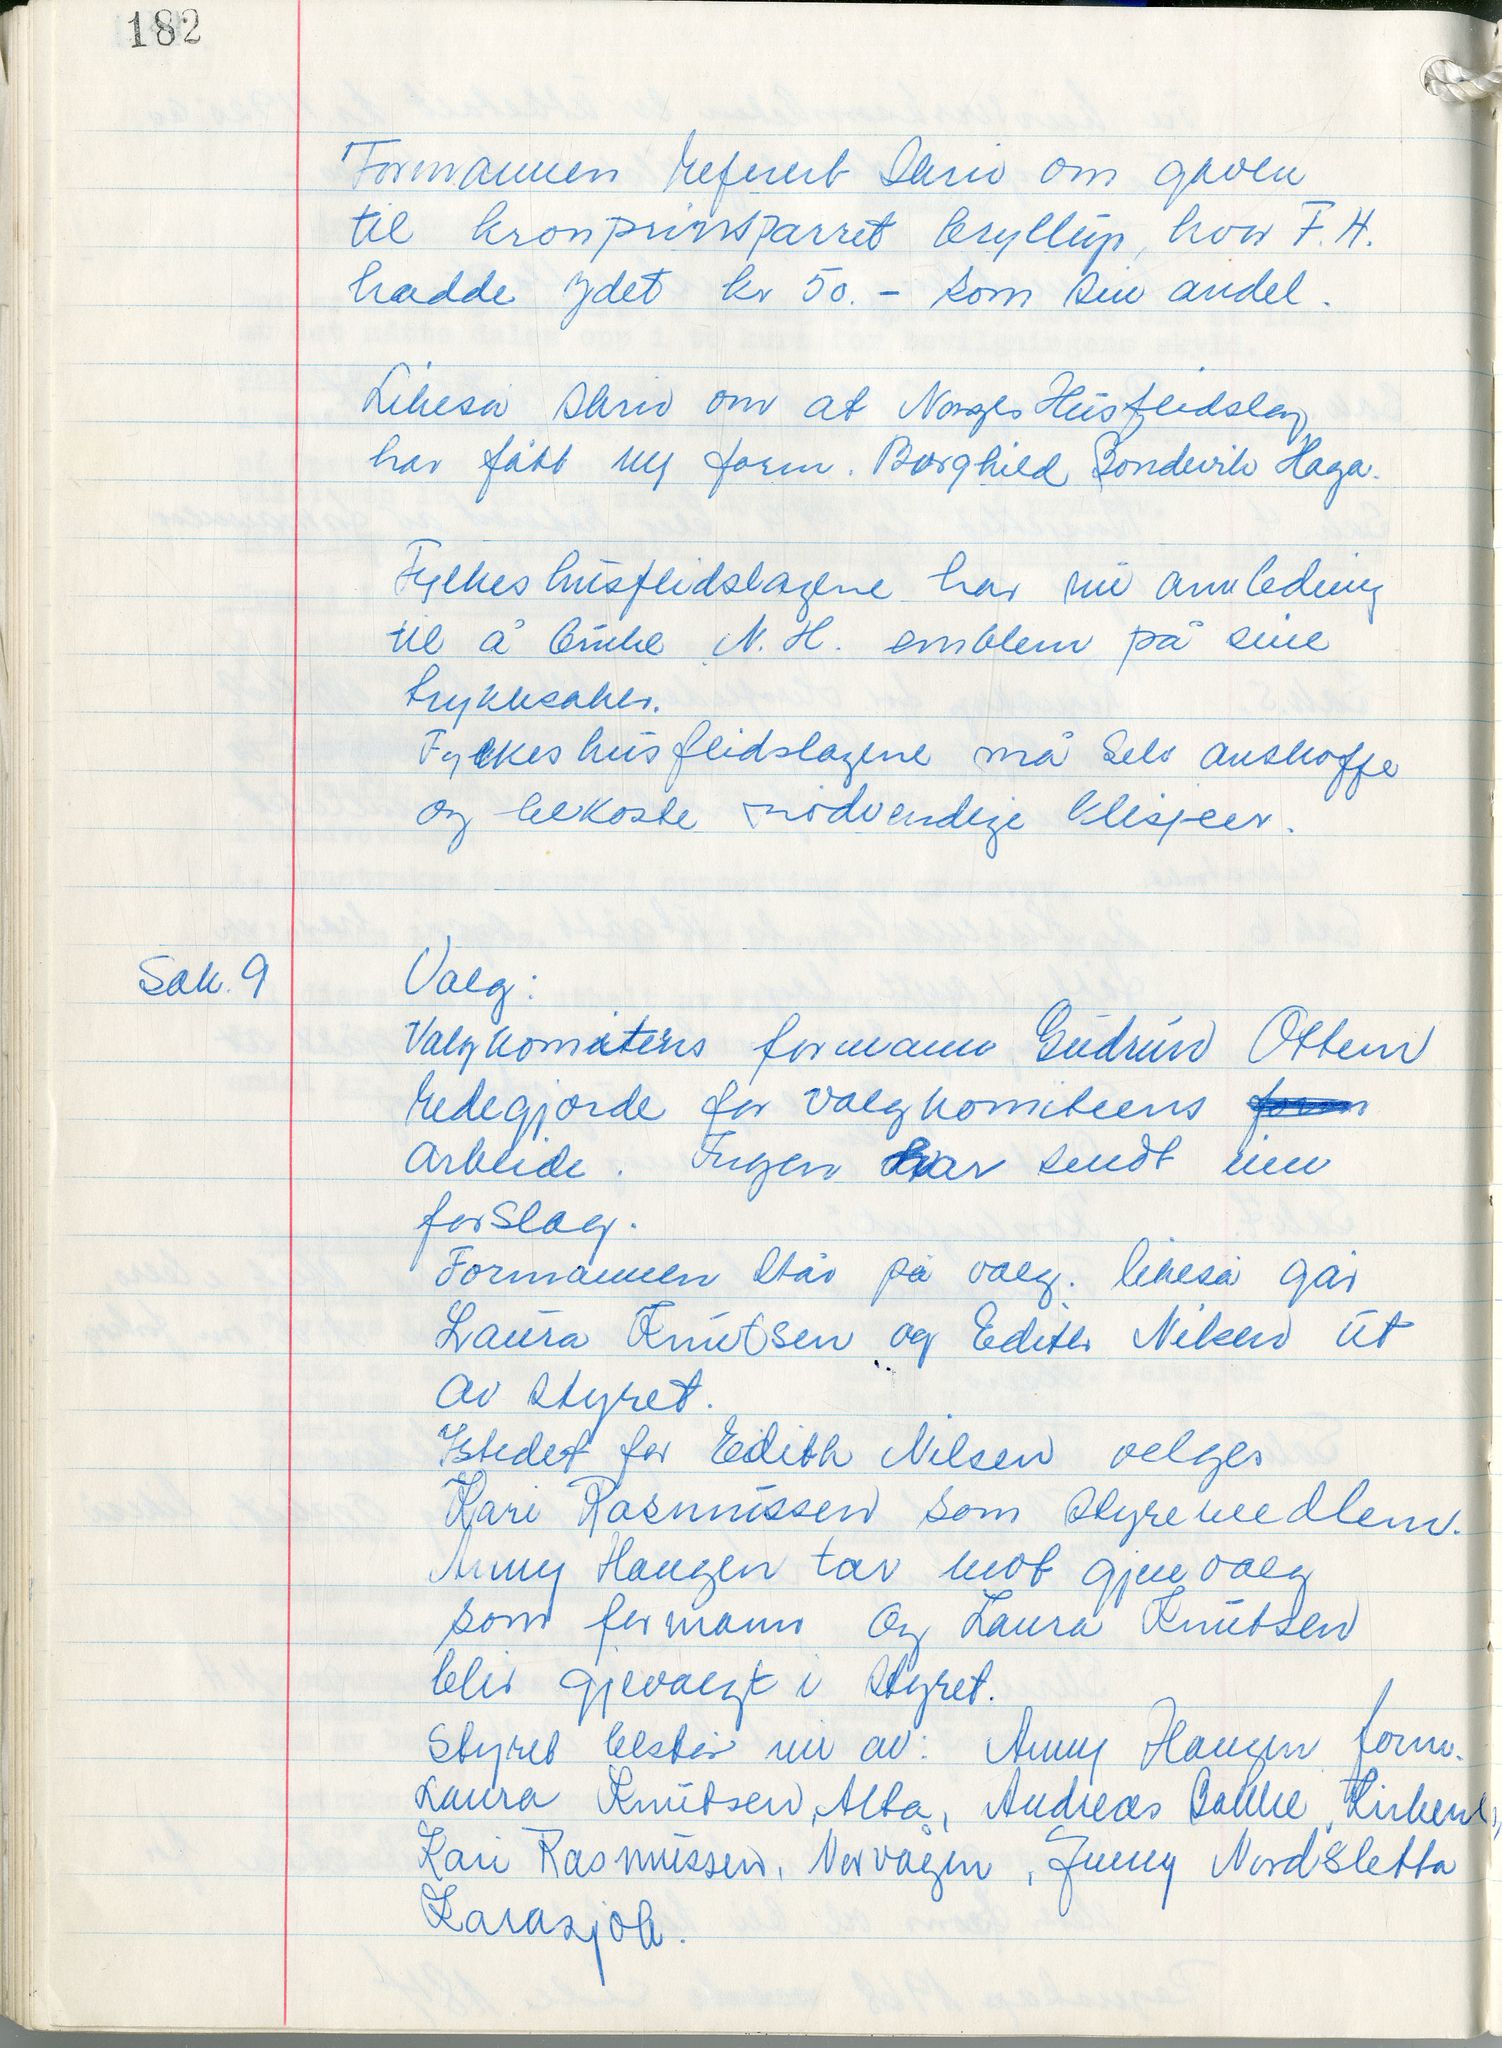 182
Formannen referert skriv om gaven
til kronprinsparret bryllup, hvor F.H.
hadde ydet kr 50.- som sin andel.
Likeså skriv om at Norges Husflidslag
har fått ny form. Borghild Bondevik Haga.
Fylkeshusflidslagene har nu anledning
til å bruke N.H. emblem på sine
trykksaker.
Fylkeshusflidslagene må selv anskaffe
og bekoste nødvendige klisjeer.
Sak. 9 Valg:
Valgkomitens formann Gudrun Ottem
redegjorde for valgkomiteens form
arbeide. Ingen har sendt inn
forslag.
Formannen står på valg. likeså går
Laura Knutsen og Edith Nilsen ut
av styret.
Istedet for Edith Nilsen velges
Kari Rasmussen som styremedlem.
Anny Haugen tar mot gjenvalg
som formann og Laura Knutsen
blir gjevalgt i styret.
Styret består nu av: Anny Haugen form.
Laura Knutsen, Alta, Andreas Bakke, Kirkenes,
Kari Rasmussen, Norvågen, Jenny Nordsletta
Karasjok.